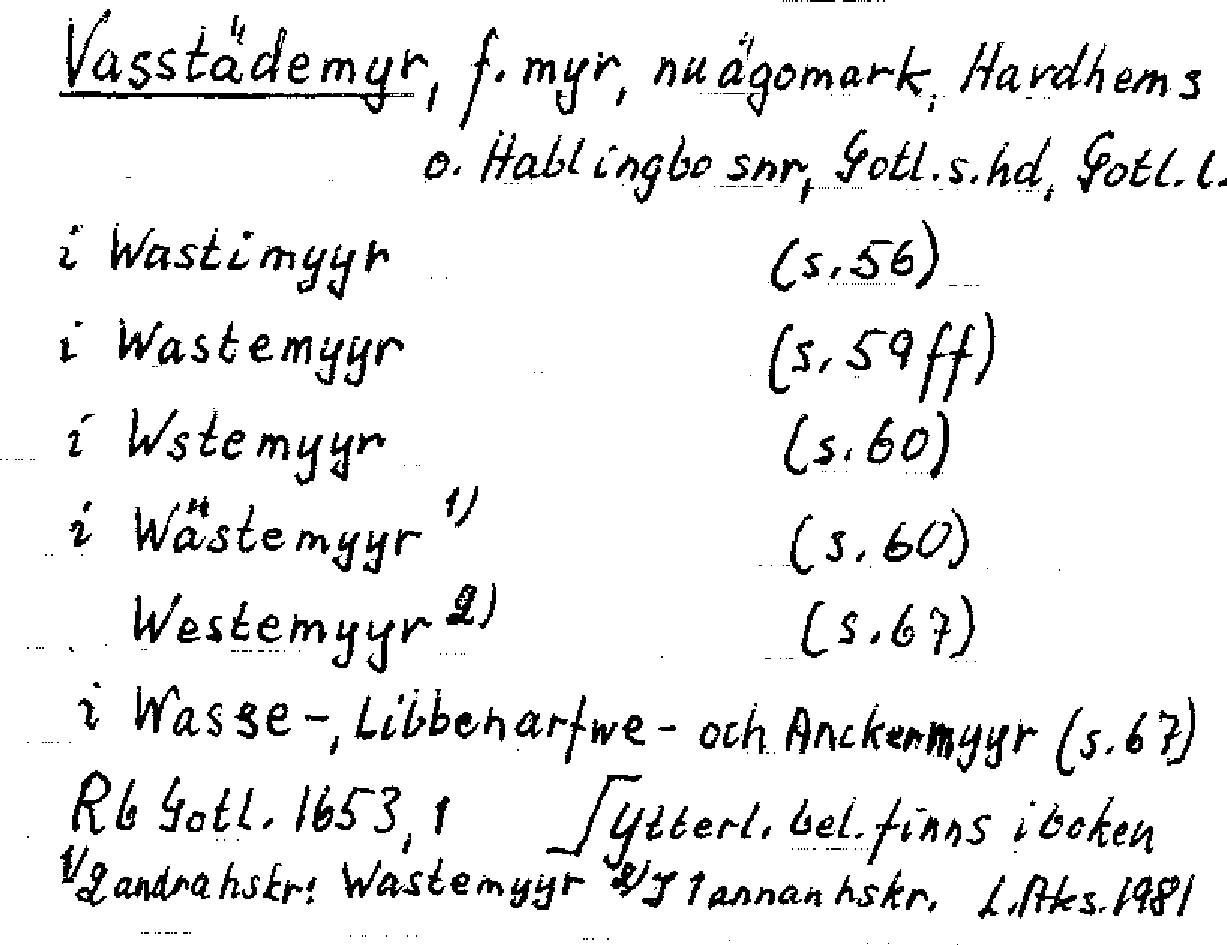 Vasstädemyr, f. myr, nu ägomark, Hardhems
o. Hablingbo snr, Gotl. s. hd, Gotl. l.
i Wastimyyr (s. 56)
i Wastemyyr (s. 59 ff)
i Wstemyyr (s. 60)
i Wästemyyr 1) (s. 60)
Westemyyr 2) (s. 67)
i Wasse-, Libbenarfwe- och Anckermyyr (s. 67)
Rb Gotl. 1653, 1 Ytterl. bel. finns i boken
1/ 2 andra hskr: Wastemyyr 2/ I 1 annan hskr. L. Aks. 1981